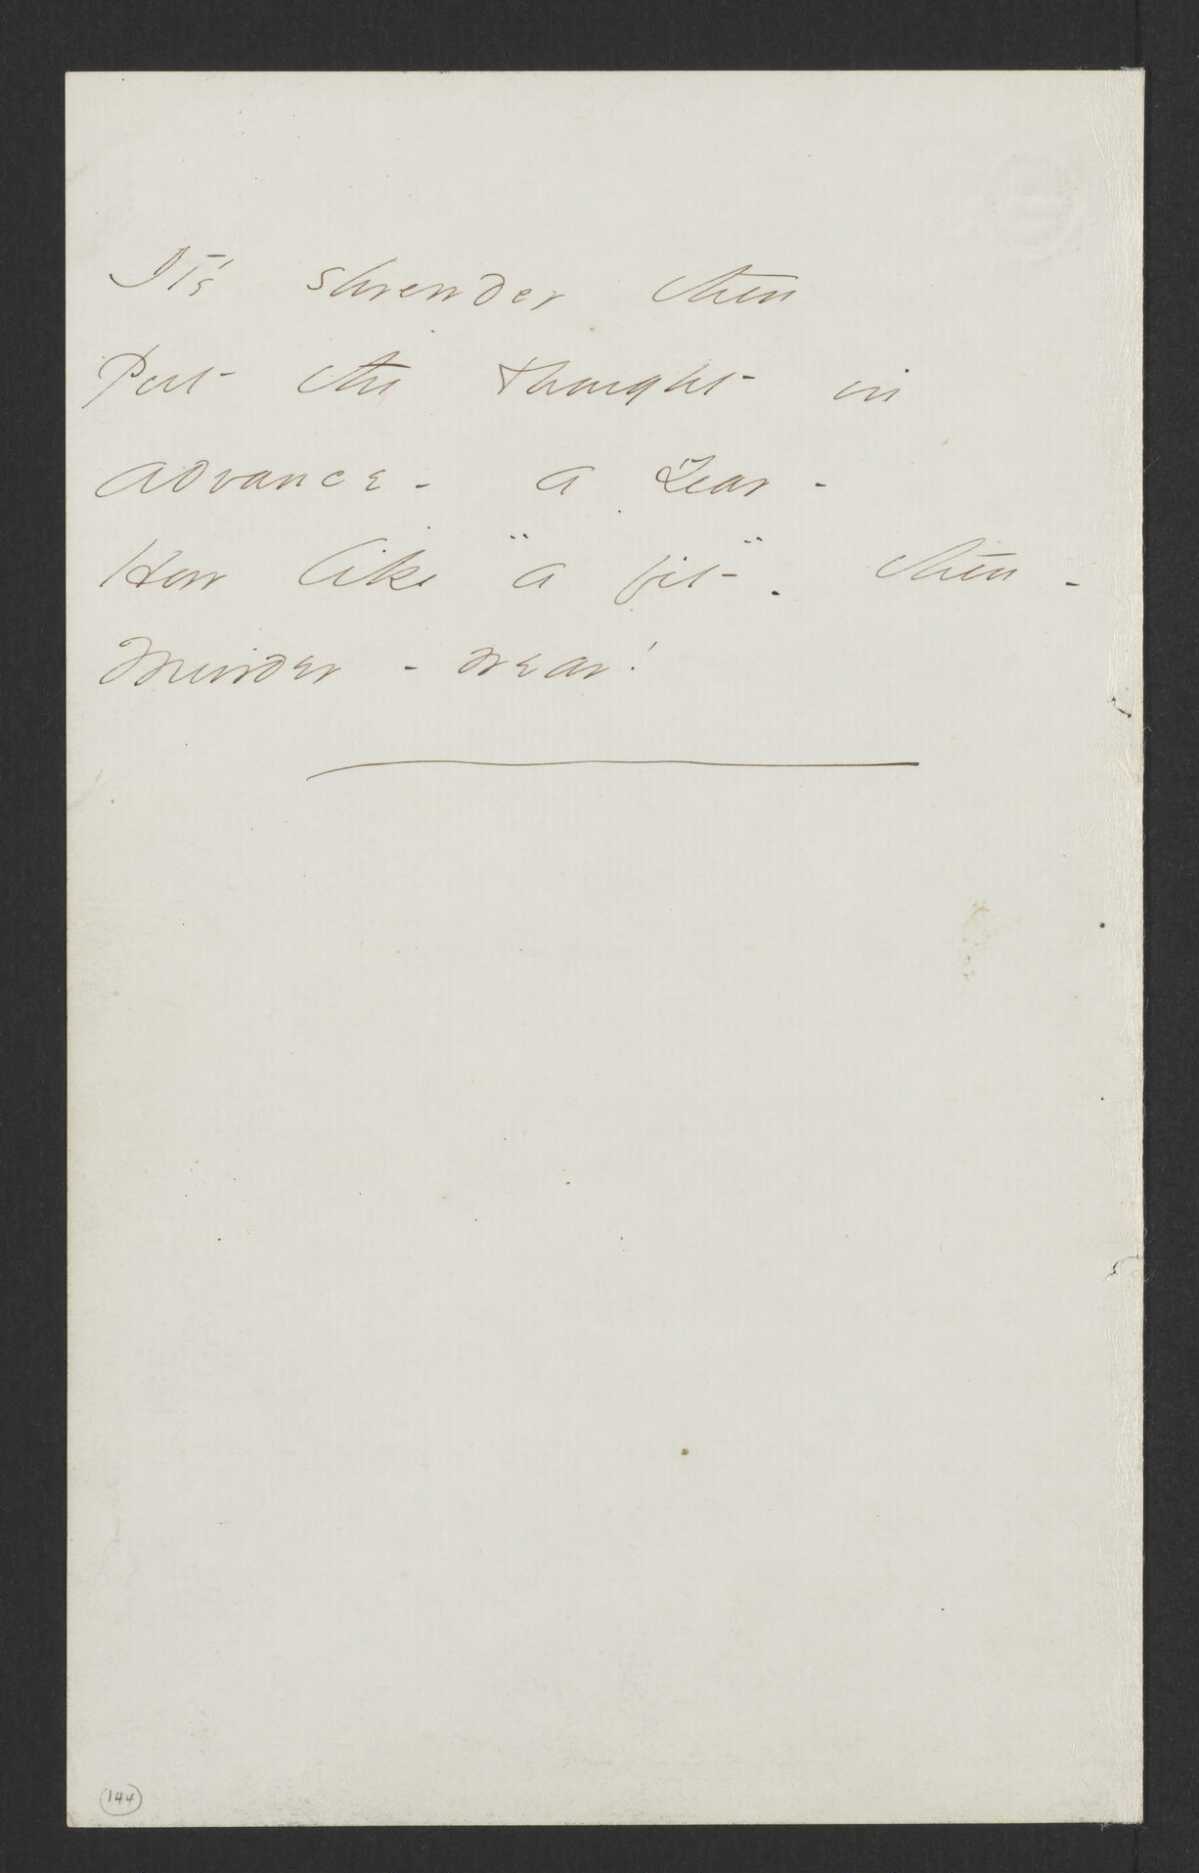 It's shrewder then
Put the thought in
advance - a Year -
How like "a fit" - then -
Murder - wear!
144